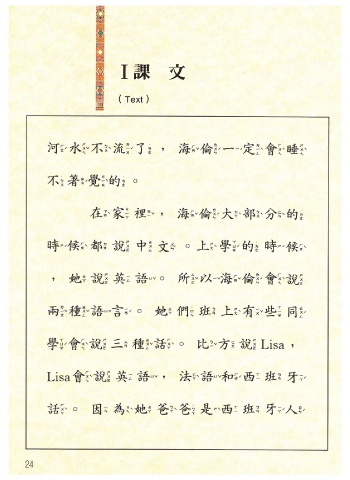 I 課 文
(Text)
河水不流了，海倫一定會睡
不著覺的。
在家裡，海倫大部分的
時候都說中文。上學的時候
，她說英語。所以海倫會說
兩種語言。她們班上有些同
學會說三種話。比方說Lisa，
Lisa會說英語，法語和西班牙
話。因為她爸爸是西班牙人
24